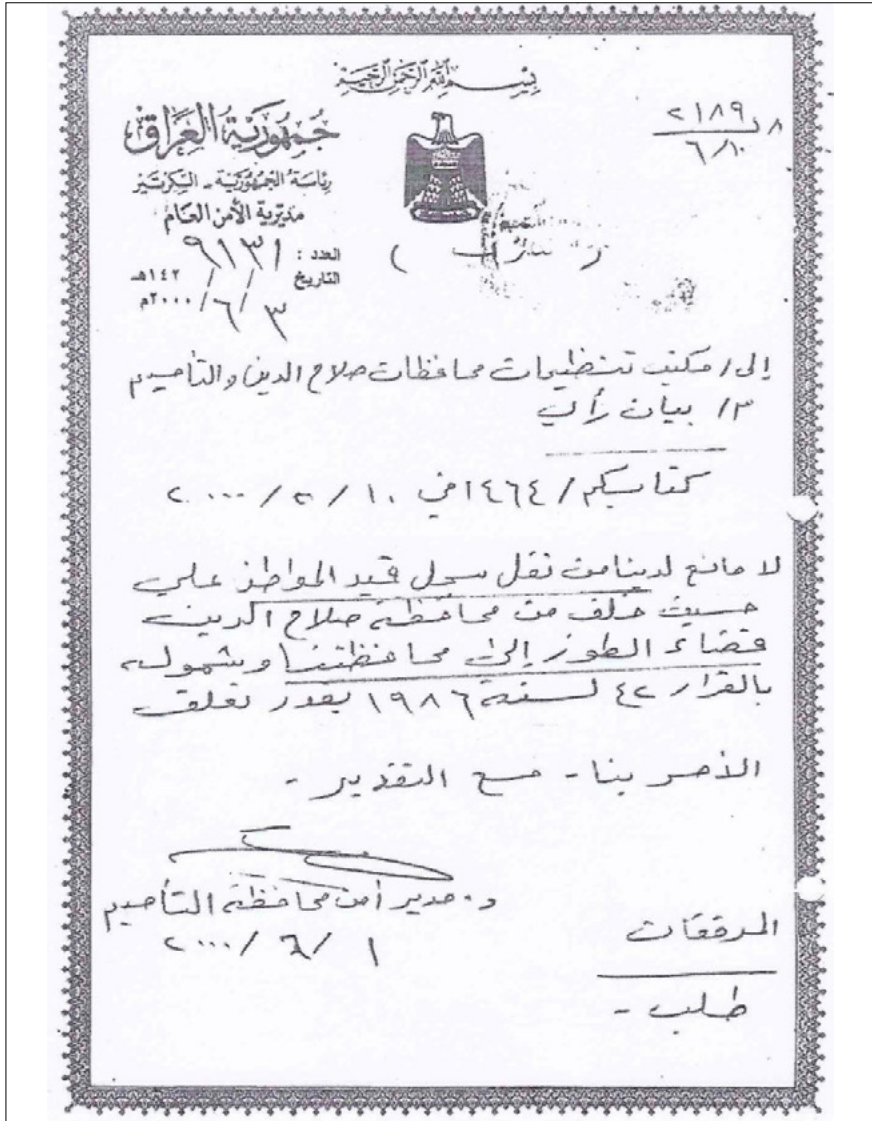 بسم الله الرحمن الرحيم
جمهورية العراق
رئاسة الجمهورية - السكرتير
مديرية الأمن العام
العدد : ٩١٣١
التاريخ ١٤٢ هـ
٣ / ٦ / ٢٠٠٠م
٢١٨٩
٦/١٠
إلى / مكتب تنظيمات محافظات صلاح الدين والتأميم
م/ بيان رأي
كتابكم / ١٤٦٤ في ١٠ / ٥ / ٢٠٠٠
لا مانع لدينا من نقل سجل قيد المواطن علي
حسين خلف من محافظة صلاح الدين
قضاء الطوز إلى محافظتنا وشموله
بالقرار ٤٢ لسنة ١٩٨٦ بقدر تعلق
الأمر بنا - مع التقدير -
د. مدير أمن محافظة التأميم
١ / ٦ / ٢٠٠٠
المرفقات
طلب -